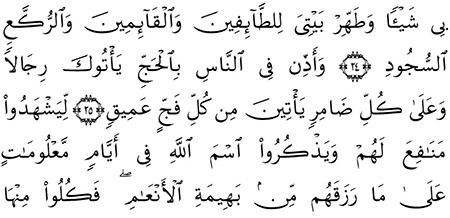 بِى شَيْـًٔا وَطَهِّرْ بَيْتِىَ لِلطَّآئِفِينَ وَٱلْقَآئِمِينَ وَٱلرُّكَّعِ
ٱلسُّجُودِ ۝٢٤ وَأَذِّن فِى ٱلنَّاسِ بِٱلْحَجِّ يَأْتُوكَ رِجَالًا
وَعَلَىٰ كُلِّ ضَامِرٍ يَأْتِينَ مِن كُلِّ فَجٍّ عَمِيقٍ ۝٢٥ لِّيَشْهَدُوا۟
مَنَـٰفِعَ لَهُمْ وَيَذْكُرُوا۟ ٱسْمَ ٱللَّهِ فِىٓ أَيَّامٍ مَّعْلُومَـٰتٍ
عَلَىٰ مَا رَزَقَهُم مِّنۢ بَهِيمَةِ ٱلْأَنْعَـٰمِ ۖ فَكُلُوا۟ مِنْهَا